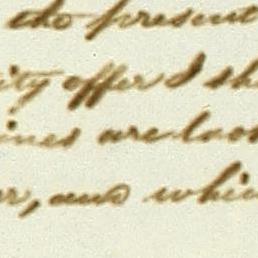 the present
ity offer I sh
ines are
r, and whi